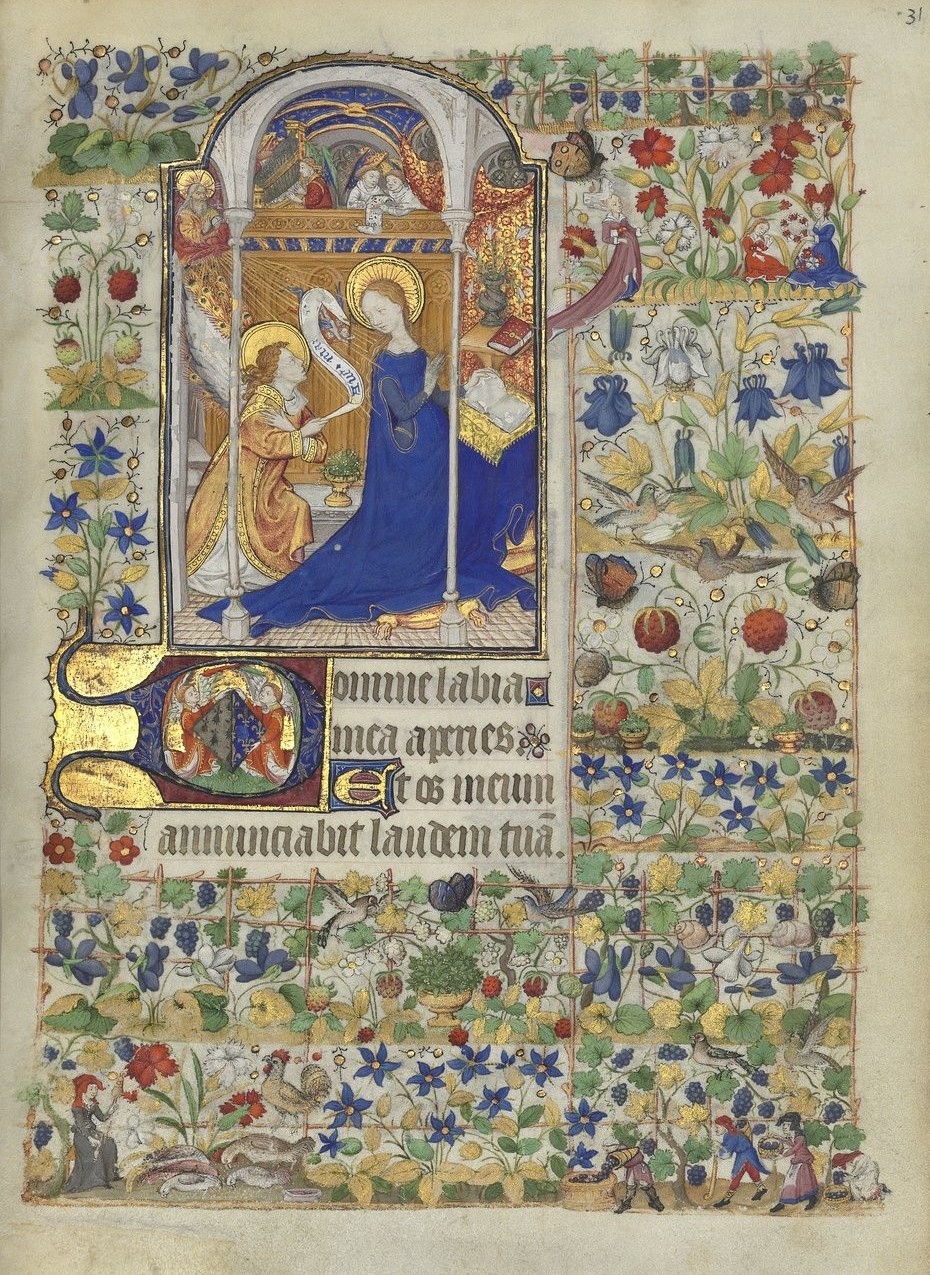 31
Aue ma
Domine labia
mea aperies
Et os meum
annunciabit laudem tuā.